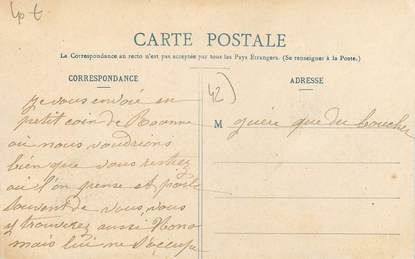 4p t
CARTE POSTALE
La Correspondance au recto n'est pas acceptée par tous les Pays Étrangers. (Se renseigner à la Poste.)
CORRESPONDANCE
ADRESSE
42)
Je vous envoie un
petit coin de Roanne
où nous voudrions
bien que vous restiez
où l'on pense et parle
souvent de vous vous
y trouverez aussi Nono
mais lui ne s'occupe
M
guère que du boucher